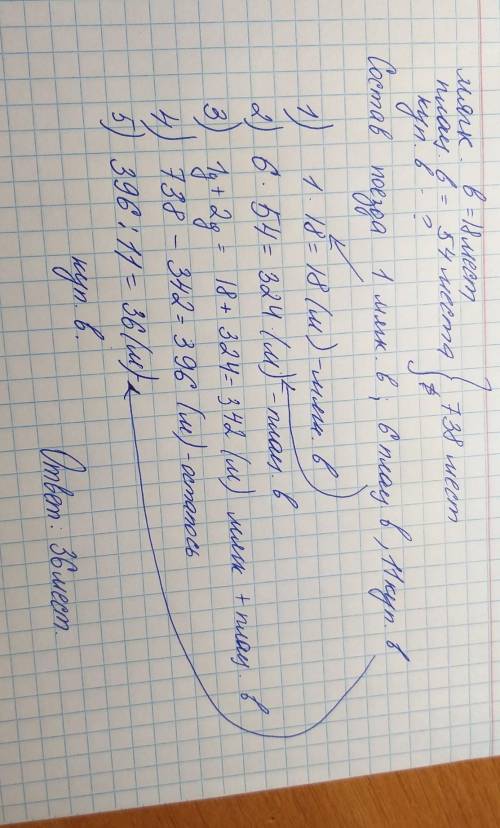 мягк. в = 18 мест
плац. в = 54 места } 738 мест
куп. в - ?
Состав поезда 1 мягк. в, 6 плац в, 11 куп. в
1) 1 · 18 = 18 (м) - мягк. в
2) 6 · 54 = 324 (м) - плац. в
3) 1д + 2д = 18 + 324 = 342 (м) мягк + плац. в
4) 738 - 342 = 396 (м) - осталось
5) 396 : 11 = 36 (м)
куп. в.
Ответ: 36 мест.